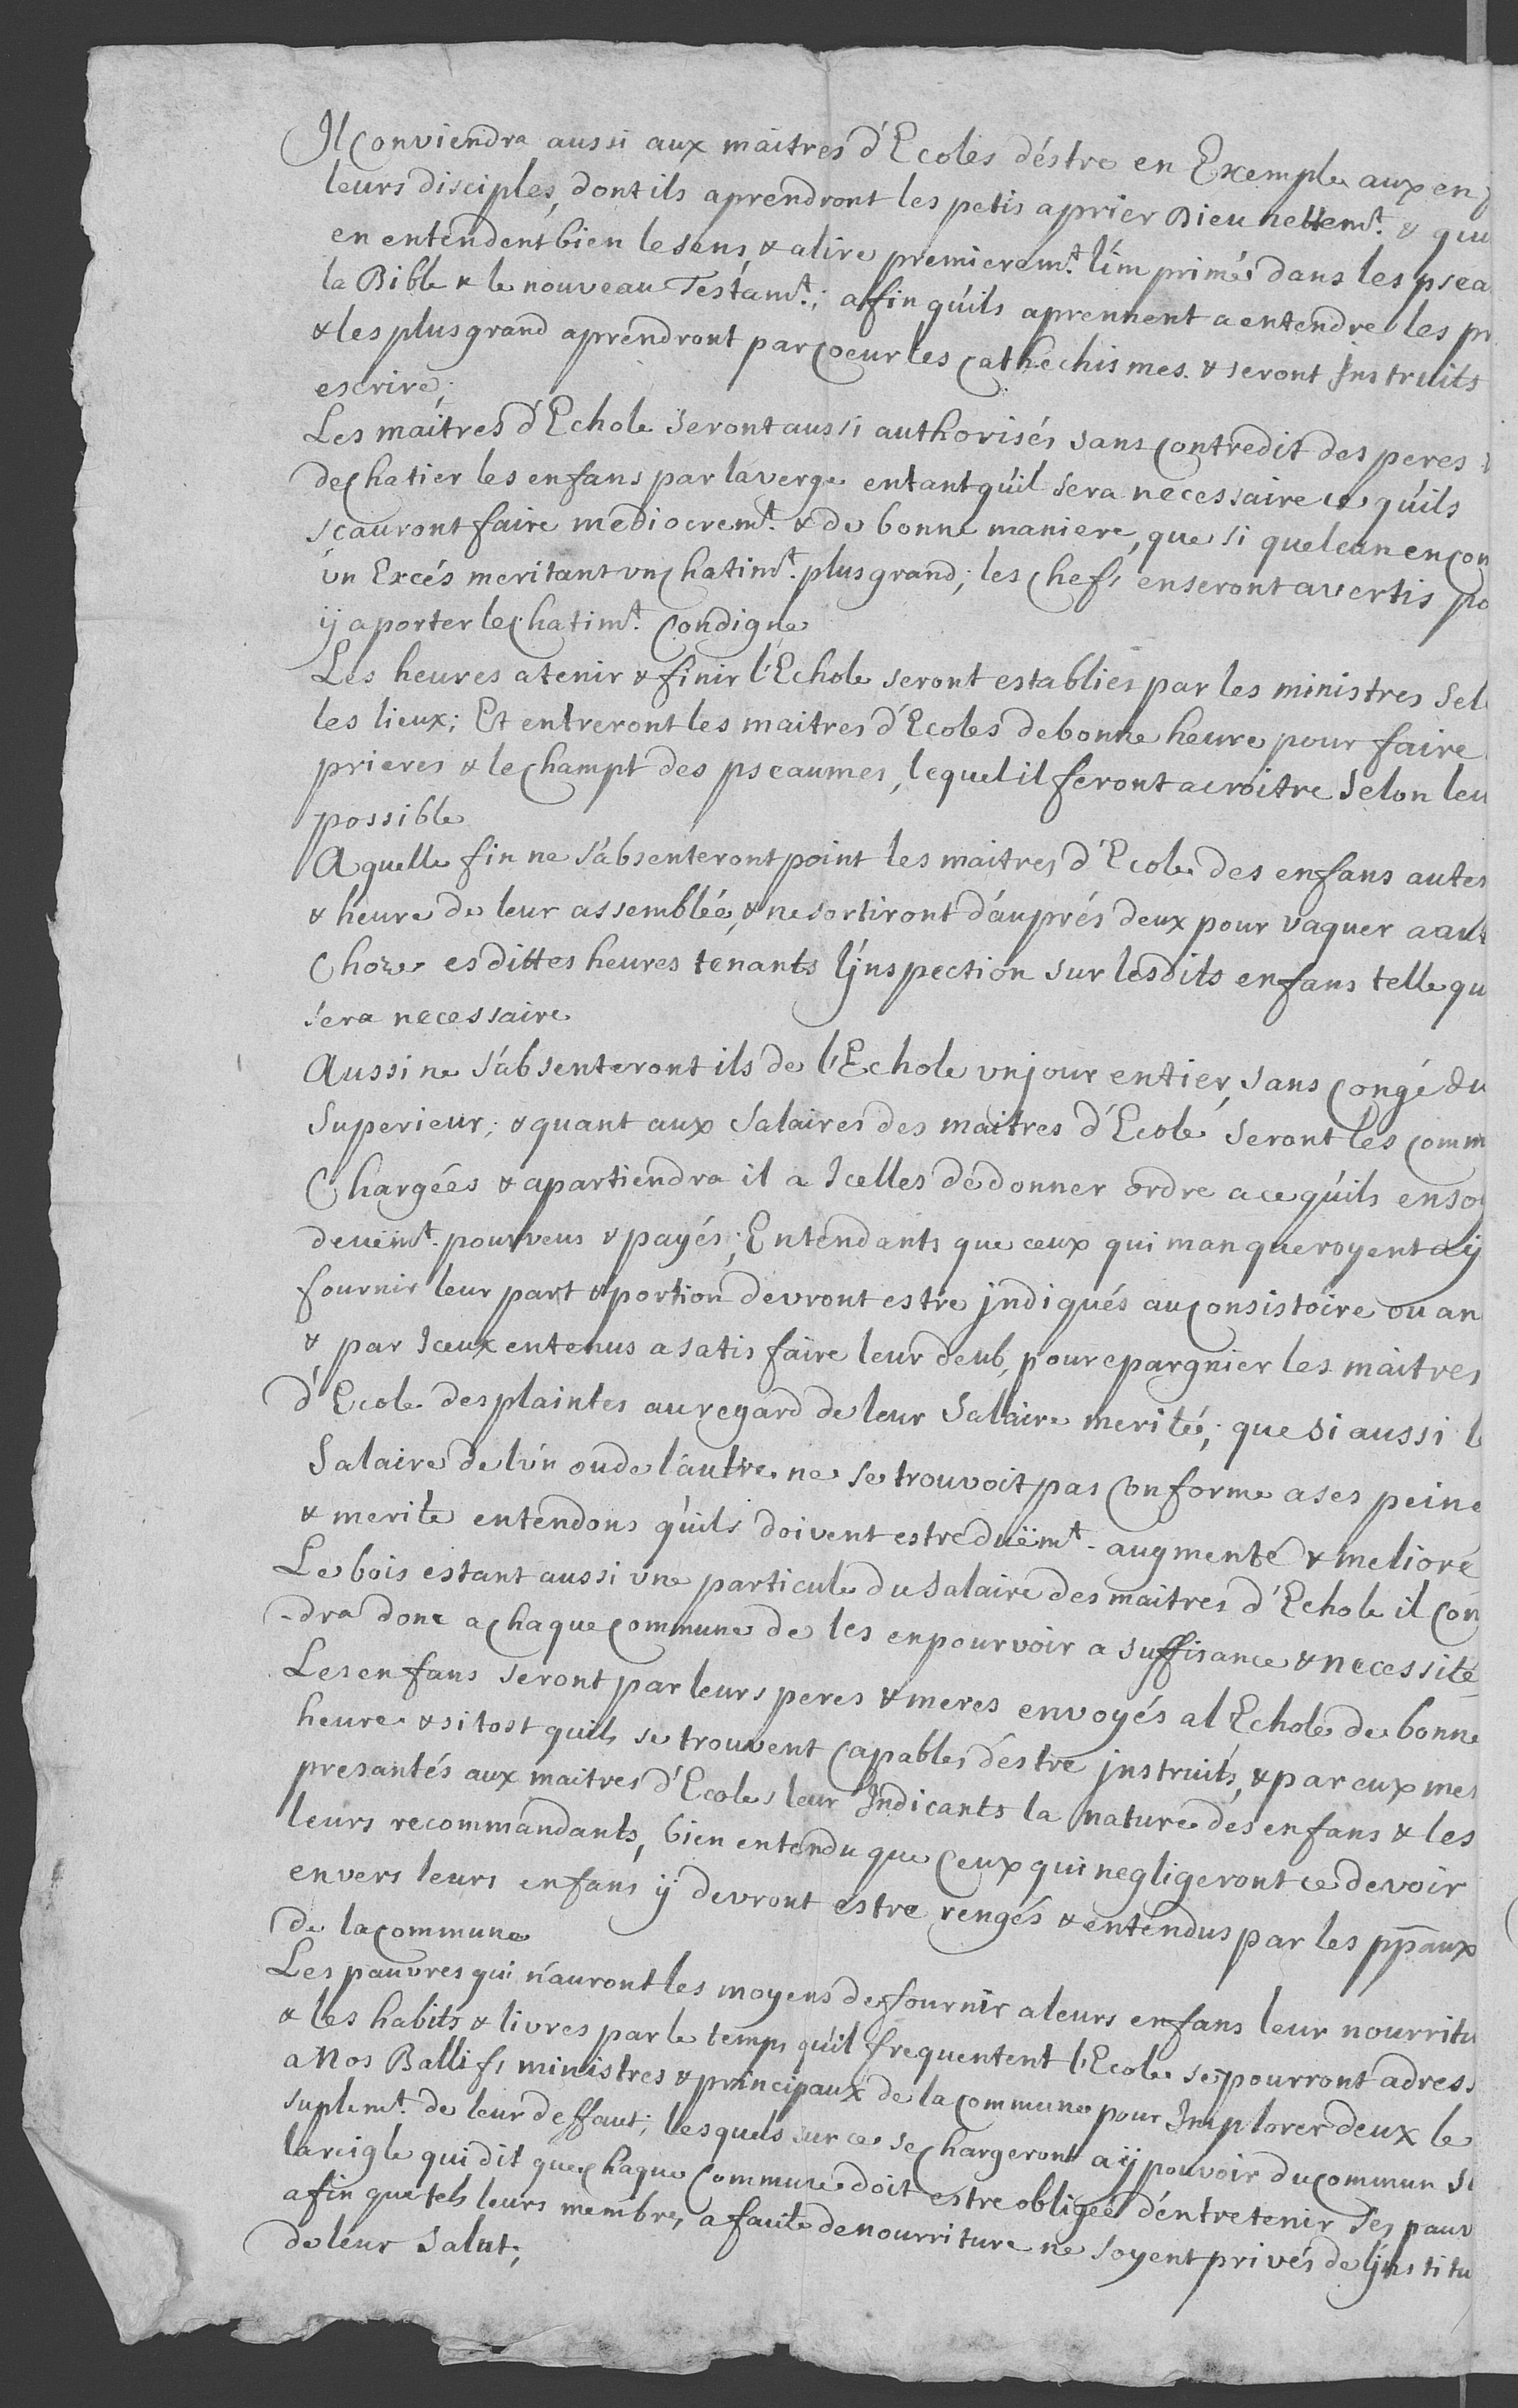 Il Conviendra aussi aux maitres d'Ecoles déstre en Exemple aux en
leurs disciples, dont ils aprendront les petis a prier Dieu nettemt. & qu
en entendent bien le sens, & a lire premieremt. l'im primée dans les psea
la Bible & le nouveau Testamt.; afin qu'ils aprennent a entendre les pr
& les plus grand aprendront par Coeur les Cathechismes. & seront Instruits
escrire;
Les maitres d'Echole seront aussi authorisés sans Contredit des peres
de Chatier les enfans par la verge entant qu'il sera necessaire ce qu'ils
scauront faire mediocremt. & de bonne maniere, que si quelcun en Con
un Excés meritant un Chatimt. plus grand; les Chefs en seront avertis po
ÿ aporter le Chatimt. Condigne
Les heures a tenir & finir l'Echole seront establies par les ministres Sel
les lieux; Et entreront les maitres d'Ecoles de bonne heure pour faire
prieres & le Champt des pseaumes, lequel il feront acroitre Selon leu
possible
A quelle fin ne s'absenteront point les maitres d'Ecole des enfans au tes
& heure de leur assemblée, & ne sortiront d'auprés deux pour vaquer a aut
Chose es dittes heures tenants l'inspection sur lesdits enfans telle qu
sera necessaire
Aussi ne s'absenteront ils de l'Echole un jour entier, sans Congé du
Superieur; & quant aux Salaires des maitres d'Ecole seront les Comm
Chargées & apartiendra il a Icelles de donner ordre a ce qu'ils en soy
deuëmt. pourveus & payés; Entendants que ceux qui manqueroyent a ÿ
fournir leur part & portion devront estre indiqués au Consistoire ou an
& par Iceux entenus a satisfaire leur deub, pour epargnier les maitres
d'Ecole des plaintes au regard de leur Salaire merité; que si aussi l
Salaire de l'un ou de l'autre ne se trouvoit pas Conforme a ses peine
& merite entendons qu'ils doivent estre duëmt. augmenté & melioré
Le bois estant aussi une particule du salaire des maitres d'Echole il Con
-dra donc a Chaque Commune de les en pourvoir a suffisance & necessité
Les enfans seront par leurs peres & meres envoyés a l'Echole de bonne
heure & si tost quils se trouvent Capables déstre instruits, & par eux mes
presantés aux maitres d'Ecoles leur Indicants la nature des enfans & les
leurs recommandants, bien entendu que Ceux qui negligeront ce devoir
envers leurs enfans ÿ devront estre rengés & entendus par les ppaux
de la Commune
Les pauvres qui n'auront les moyens de fournir a leurs enfans leur nourritu
& les habits & livres par le temps qu'il frequentent l'Ecole se pourront adress
a Nos Ballifs ministres & principaux de la Commune pour Implorer deux le
suplemt. de leur deffaut; lesquels sur ce se Chargeront a ÿ pouvoir du Commun S
la reigle qui dit que Chaque Commune doit estre obligée d'entretenir ses pauv
afin que tels leurs membres a faute de nourriture ne soyent privés de l'institu
de leur Salut;